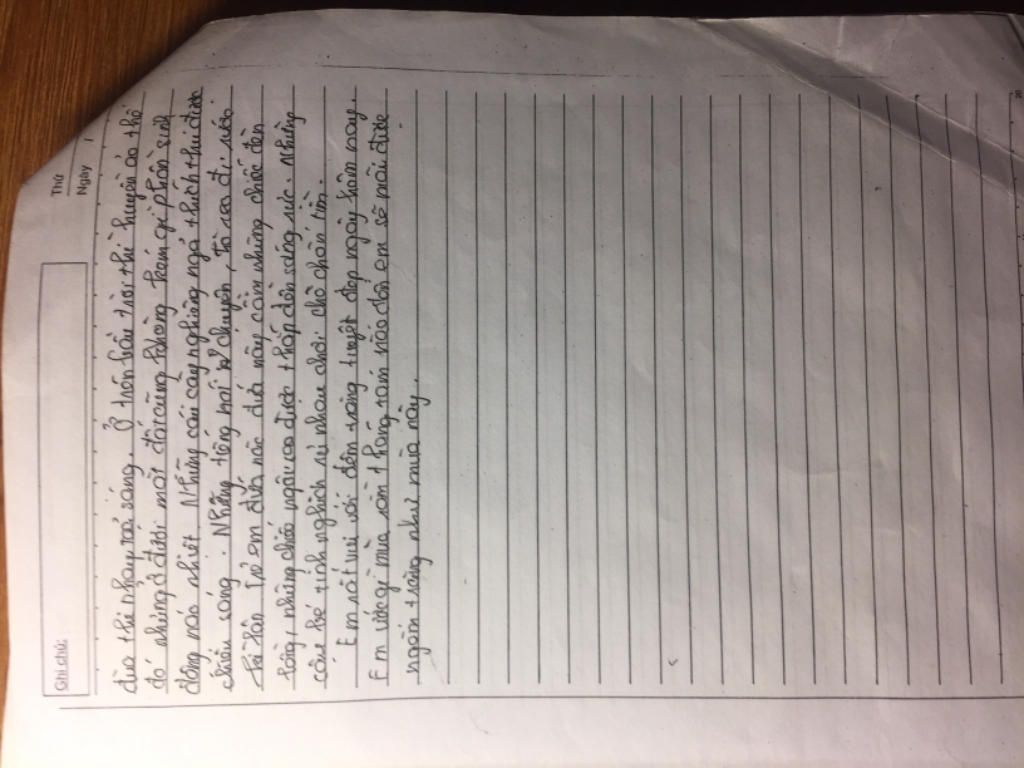 Ghi chú:
Thứ
Ngày /
đua thi nhau toả sáng. Ở trên bầu trời thì huyền ảo thế
đó nhưng ở dưới mặt đất cũng không kém gì phần sinh
động náo nhiệt. Những cái cây nghiêng ngả thích thú được
chiếu sáng. Những tiếng nói chuyện, từ xa đi rước
trẻ em đứa nào đứa nấy cầm những chiếc đèn
lồng, những chiếc ngôi sao được thắp đèn sáng rực. Những
cậu bé tinh nghịch rủ nhau chơi chò chơi trốn tìm.
Em rất vui với đêm trăng tuyệt đẹp ngày hôm nay.
Em ước gì mùa rằm tháng tám nào đó em sẽ mãi được
ngắm trăng như mùa này.
20